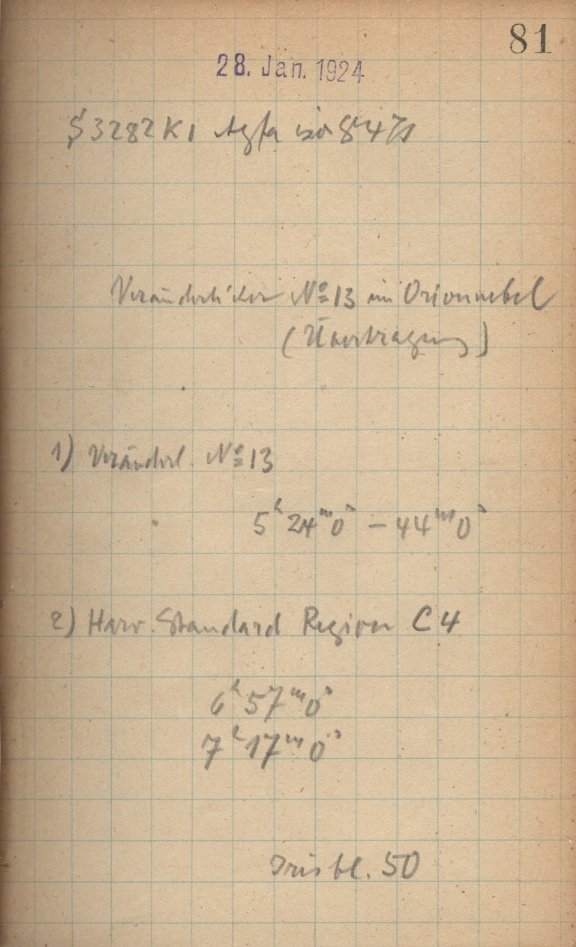 81
28. Jan. 1924
S3282 K1 Agfa iso 8471
Veränderlicher No 13 im Orionnebel
(Übertragung)
1) Veränderl. No 13
5h 24m 0s – 44m 0s
2) Harv. Standard Region C4
6h 57m 0s
7h 17m 0s
Irisbl. 50